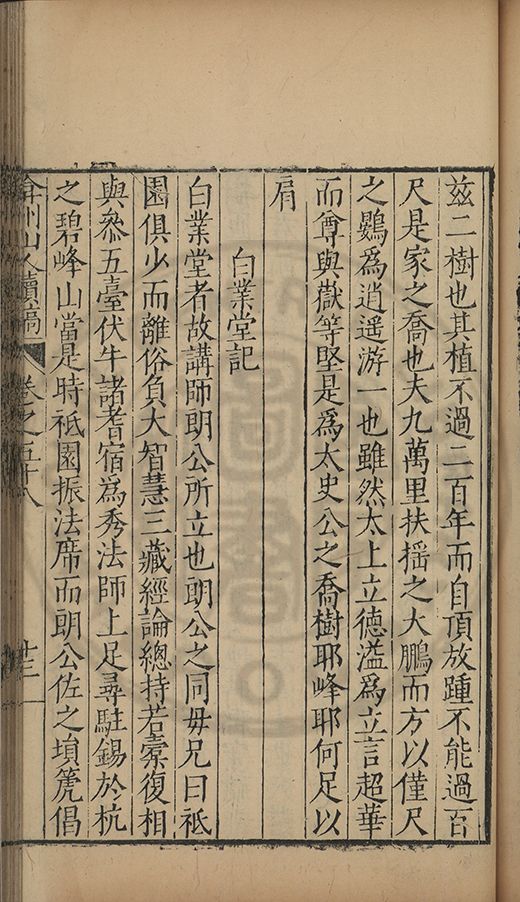 茲二樹也其植不過二百年而自頂放踵不能過百
尺是家之喬也夫九萬里扶摇之大鵬而方以僅尺
之鷃為逍遥游一也雖然太上立德溢為立言超華
而尊與嶽等堅是為太史公之喬樹耶峰耶何足以
肩
白業堂記
白業堂者故講師明公所立也明公之同毋兄曰祇
園俱少而離俗負大智慧三藏經論總持若橐復相
與叅五臺伏牛諸耆宿為秀法師上足尋駐錫於杭
之碧峰山當是時祇園振法席而明公佐之塤箎倡
弇州山人續稿
卷之五十八
十三